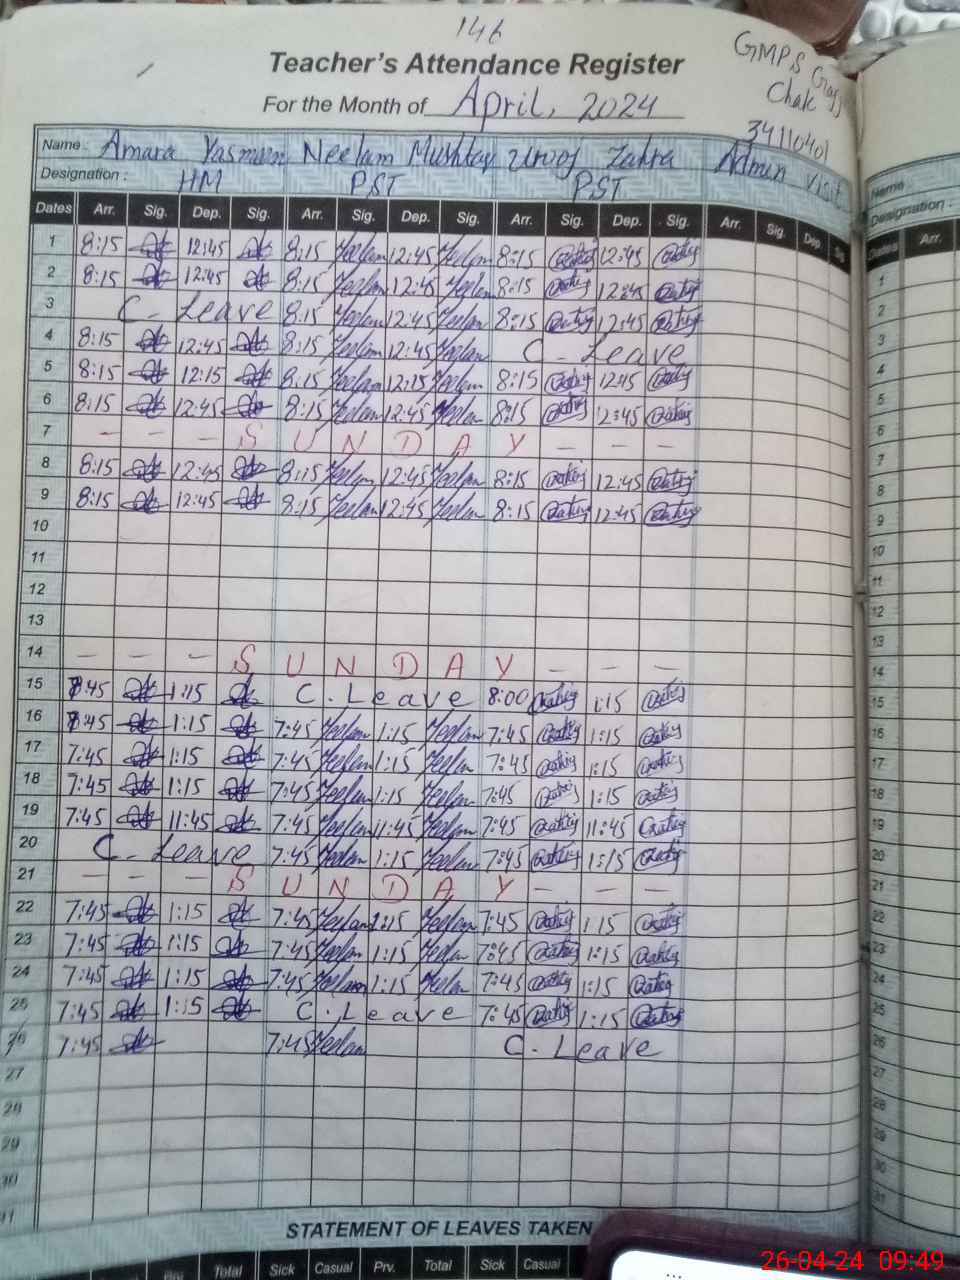 146
Teacher's Attendance Register
GMPS
Chak
34110401
For the Month of April, 2024
Name : Amara Yasmeen Neelam Mushtaq Urooj Zahra Admin Visit
Designation : HM PST PST
Dates Arr. Sig. Dep. Sig. Arr. Sig. Dep. Sig. Arr. Sig. Dep. Sig. Arr. Sig. Dep Sig
1 8:15 12:45 8:15 Neelam 12:45 Neelam 8:15 12:45
2 8:15 12:45 8:15 Neelam 12:45 Neelam 8:15 12:45
3 C. Leave 8:15 Neelam 12:45 Neelam 8:15 12:45
4 8:15 12:45 8:15 Neelam 12:45 Neelam C. Leave
5 8:15 12:15 8:15 Neelam 12:15 Neelam 8:15 12:15
6 8:15 12:45 8:15 Neelam 12:45 Neelam 8:15 12:45
7 - - - S U N D A Y - - -
8 8:15 12:45 8:15 Neelam 12:45 Neelam 8:15 12:45
9 8:15 12:45 8:15 Neelam 12:45 Neelam 8:15 12:45
10
11
12
13
14 - - - S U N D A Y - - -
15 7:45 1:15 C. Leave 8:00 1:15
16 7:45 1:15 7:45 Neelam 1:15 Neelam 7:45 1:15
17 7:45 1:15 7:45 Neelam 1:15 Neelam 7:45 1:15
18 7:45 1:15 7:45 Neelam 1:15 Neelam 7:45 1:15
19 7:45 11:45 7:45 Neelam 11:45 Neelam 7:45 11:45
20 C. Leave 7:45 Neelam 1:15 Neelam 7:45 1:15
21 - - - S U N D A Y - - -
22 7:45 1:15 7:45 Neelam 1:15 Neelam 7:45 1:15
23 7:45 1:15 7:45 Neelam 1:15 Neelam 7:45 1:15
24 7:45 1:15 7:45 Neelam 1:15 Neelam 7:45 1:15
25 7:45 1:15 C. Leave 7:45 1:15
26 7:45 7:45 Neelam C. Leave
27
28
29
30
31
STATEMENT OF LEAVES TAKEN
Total Sick Casual Prv. Total Sick Casual
Name :
Designation :
Dates Arr.
1
2
3
4
5
6
7
8
9
10
11
12
13
14
15
16
17
18
19
20
21
22
23
24
25
26
27
28
29
30
31
26-04-24 09:49